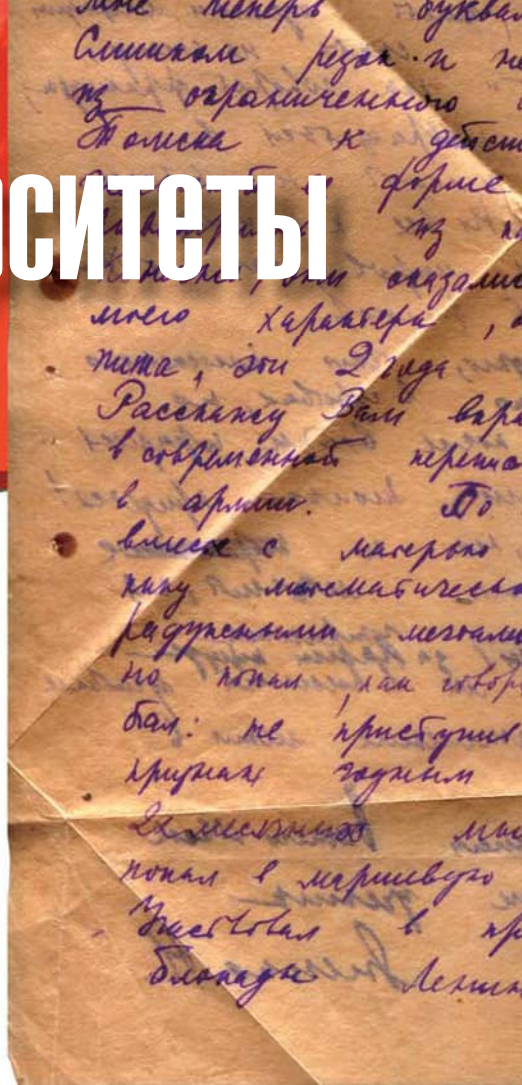 мне теперь буквал
Слишком резок и не
из ограниченного
Томска к дейст
форме
оситеты
из
Конечно, они оказали
моего характера,
пита, эти 2 года
Расскажу Вам вкра
в современной перепис
в армии. По
вместе с матерью
математическо
радужными мечтами
но попал, как говор
бал: не приступив
признан годным
2хмесячного
попал в маршевую
Участвовал в пр
блокады Ленин